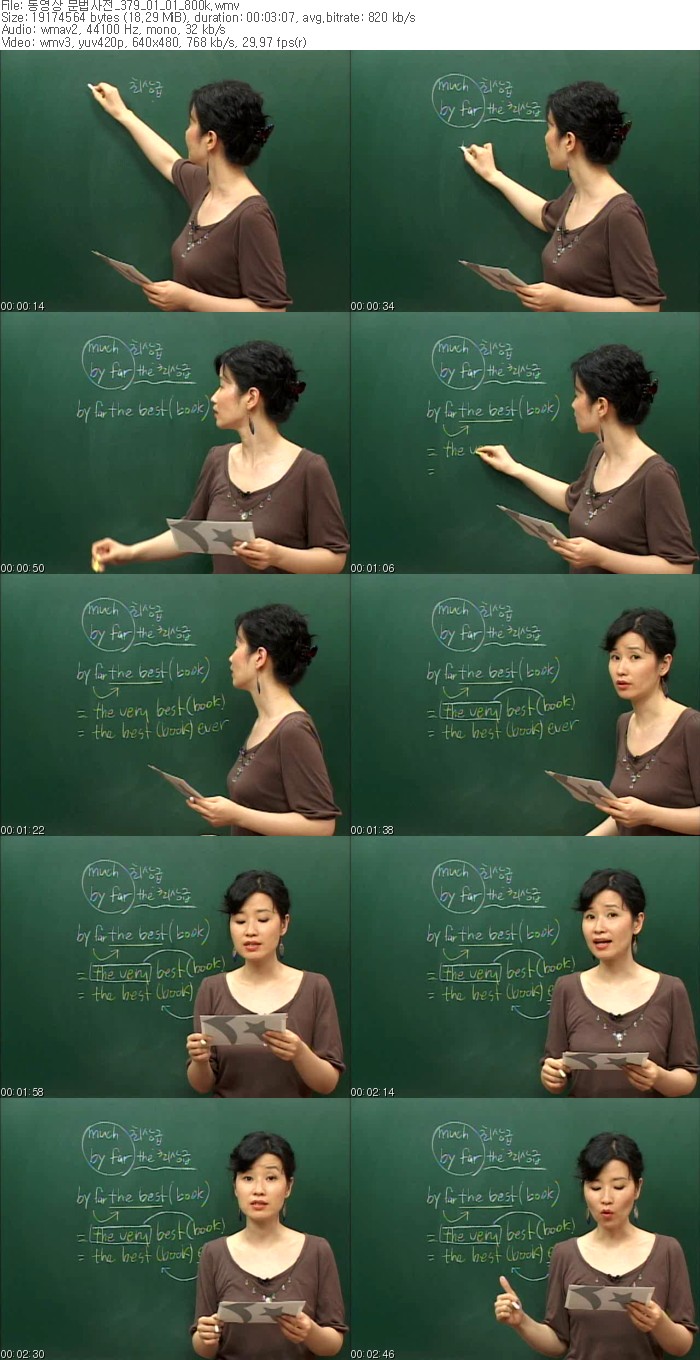 File: 동영상 문법사전_379_01_01_800k.wmv
Size: 19174564 bytes (18,29 MiB), duration: 00:03:07, avg.bitrate: 820 kb/s
Audio: wmav2, 44100 Hz, mono, 32 kb/s
Video: wmv3, yuv420p, 640x480, 768 kb/s, 29,97 fps(r)
최상급
00:00:14
much
by far the 최상급
00:00:34
much 최상급
by far the 최상급
by far the best (book)
00:00:50
much 최상급
by far the 최상급
by far the best (book)
= the v
=
00:01:06
much 최상급
by far the 최상급
by far the best (book)
= the very best (book)
= the best (book) ever
00:01:22
much 최상급
by far the 최상급
by far the best (book)
= the very best (book)
= the best (book) ever
00:01:38
much 최상급
by far the 최상급
by far the best (book)
= the very best (book)
= the best (book)
00:01:58
much 최상급
by far the 최상급
by far the best (book)
= the very best (book)
= the best (book) e
00:02:14
much 최상급
by far the 최상급
by far the best (book)
= the very best (book)
= the best (book) e
00:02:30
much 최상급
by far the 최상급
by far the best (book)
= the very best (book)
= the best (book) e
00:02:46